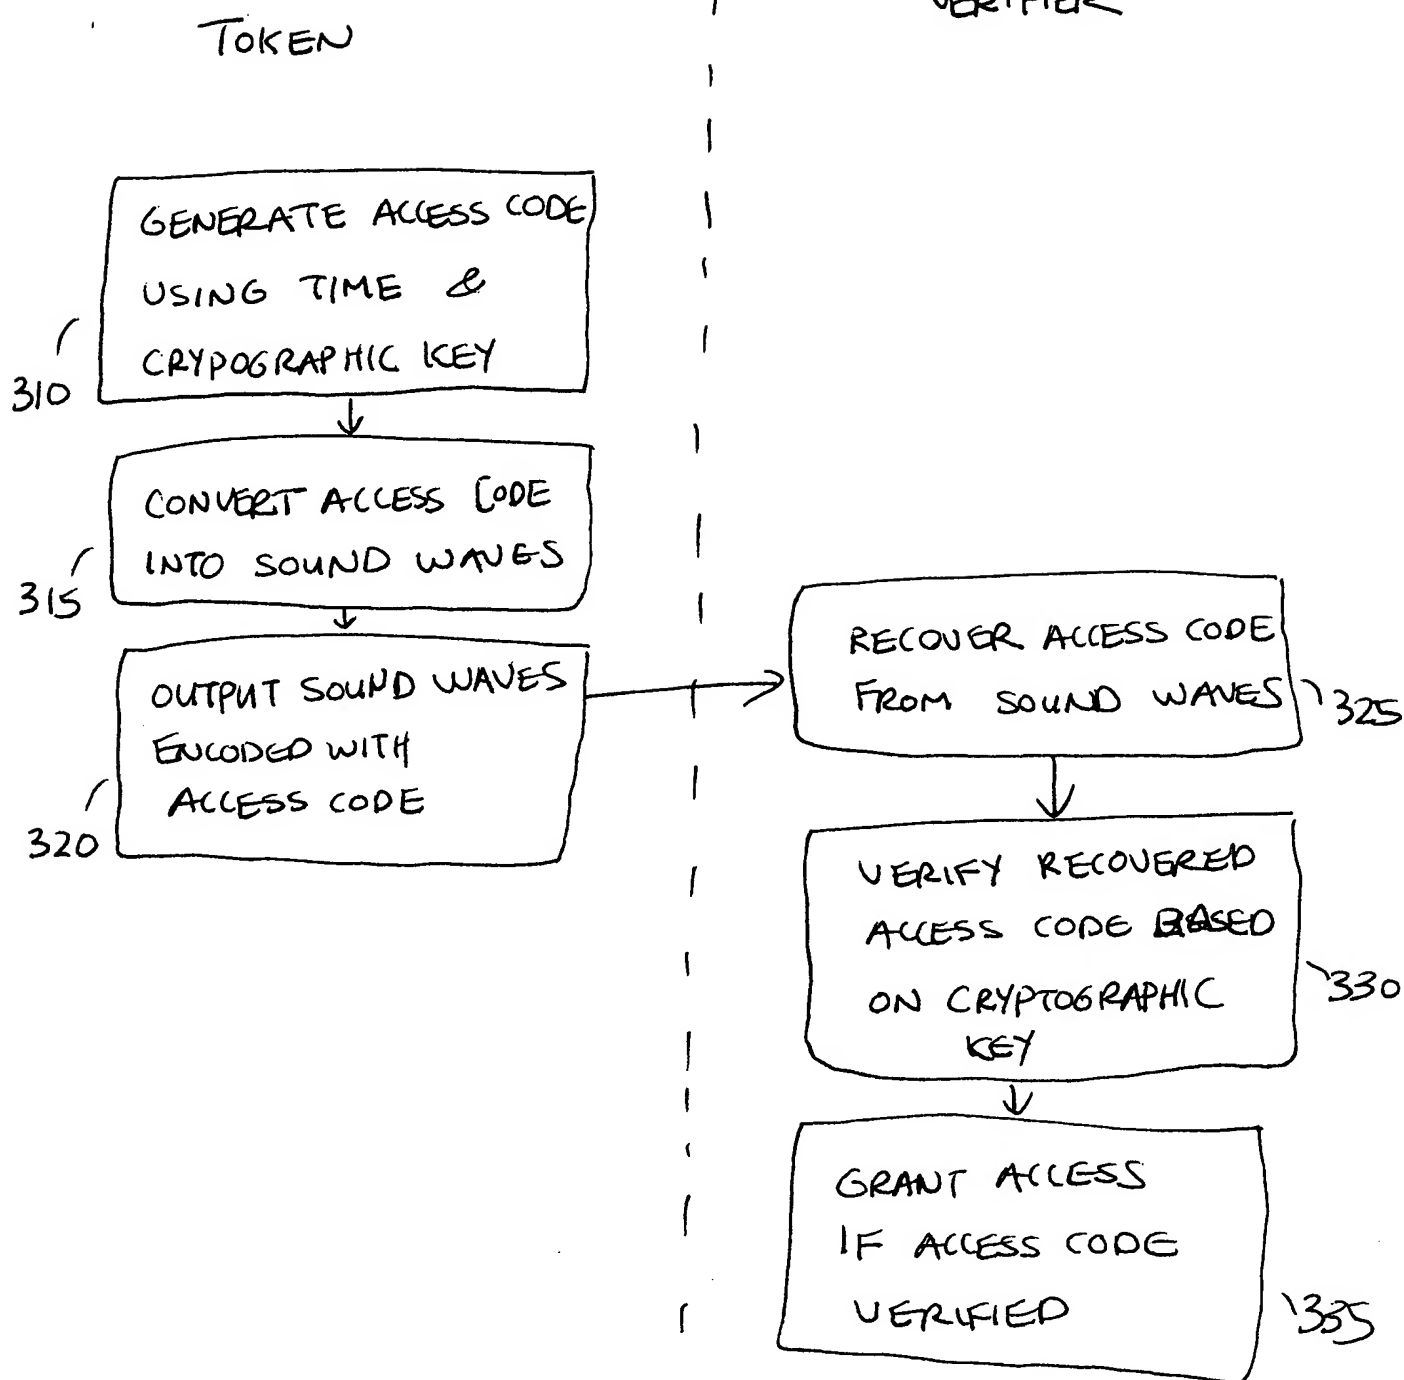 TOKEN
VERIFIER
GENERATE ACCESS CODE
USING TIME &
CRYPOGRAPHIC KEY
310
CONVERT ACCESS CODE
INTO SOUND WAVES
315
OUTPUT SOUND WAVES
ENCODED WITH
ACCESS CODE
320
RECOVER ACCESS CODE
FROM SOUND WAVES
325
VERIFY RECOVERED
ACCESS CODE BASED
ON CRYPTOGRAPHIC
KEY
330
GRANT ACCESS
IF ACCESS CODE
VERIFIED
335